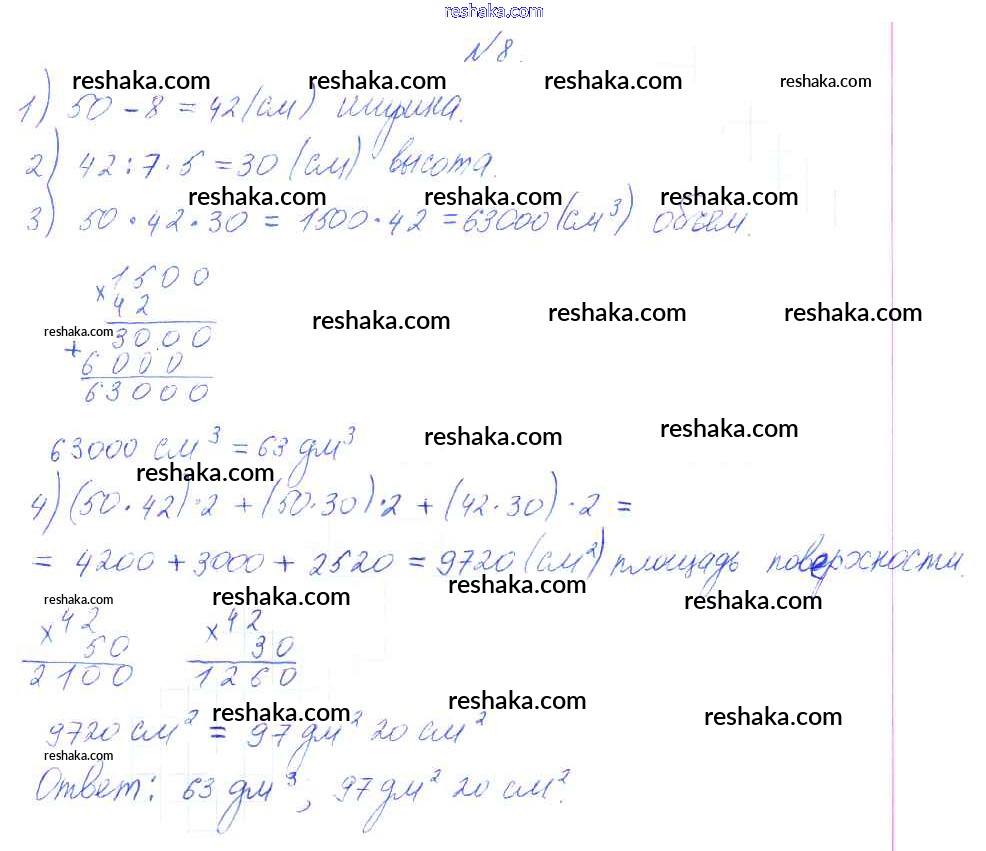 reshaka.com
№ 8.
reshaka.com reshaka.com reshaka.com reshaka.com
1) 50 - 8 = 42 (см) ширина.
2) 42 : 7 · 5 = 30 (см) высота.
reshaka.com reshaka.com reshaka.com
3) 50 · 42 · 30 = 1500 · 42 = 63000 (см³) объём.
× 1500
42
reshaka.com reshaka.com reshaka.com reshaka.com
3000
+
6000
63000
reshaka.com reshaka.com
63000 см³ = 63 дм³
reshaka.com
4) (50 · 42) · 2 + (50 · 30) · 2 + (42 · 30) · 2 =
= 4200 + 3000 + 2520 = 9720 (см²) площадь поверхности.
reshaka.com reshaka.com reshaka.com reshaka.com
× 42 × 42
50 30
2100 1260
reshaka.com reshaka.com reshaka.com
9720 см² = 97 дм² 20 см²
reshaka.com
Ответ: 63 дм³, 97 дм² 20 см².